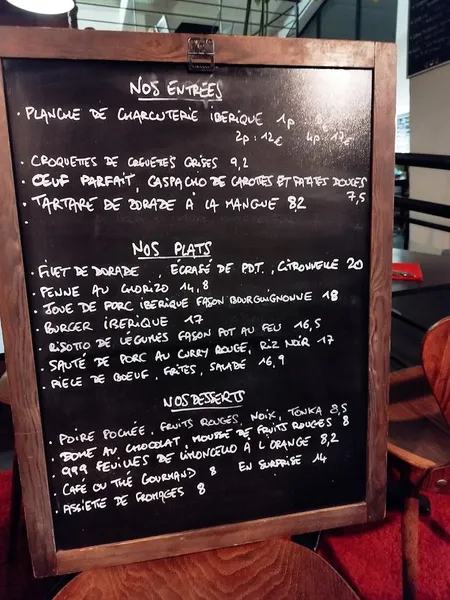 NOS ENTREES
· PLANCHE DE CHARCUTERIE IBERIQUE 1p
2p : 12€ 4p : 17€
· CROQUETTES DE CREVETTES GRISES 9,2
· ŒUF PARFAIT, GASPACHO DE CAROTTES ET PATATES DOUCES
7,5
· TARTARE DE DORADE A LA MANGUE 8,2
NOS PLATS
· FILET DE DORADE , ÉCRASÉ DE PDT., CITRONNELLE 20
· PENNE AU CHORIZO 14,8
· JOUE DE PORC IBERIQUE FASON BOURGUIGNONNE 18
· BURGER IBERIQUE 17
· RISOTTO DE LEGUMES FASON POT AU FEU 16,5
· SAUTÉ DE PORC AU CURRY ROUGE, RIZ NOIR 17
· PIECE DE BOEUF, FRITES, SALADE 16,9
NOS DESSERTS
· POIRE POCHÉE, FRUITS ROUGES, NOIX, TONKA 8,5
· DOME AU CHOCOLAT, MOUSSE DE FRUITS ROUGES 8
· 999 FEUILLES DE LIMONCELLO À L'ORANGE 8,2
· CAFÉ OU THÉ GOURMAND 8 EN SURPRISE 14
· ASSIETTE DE FROMAGES 8